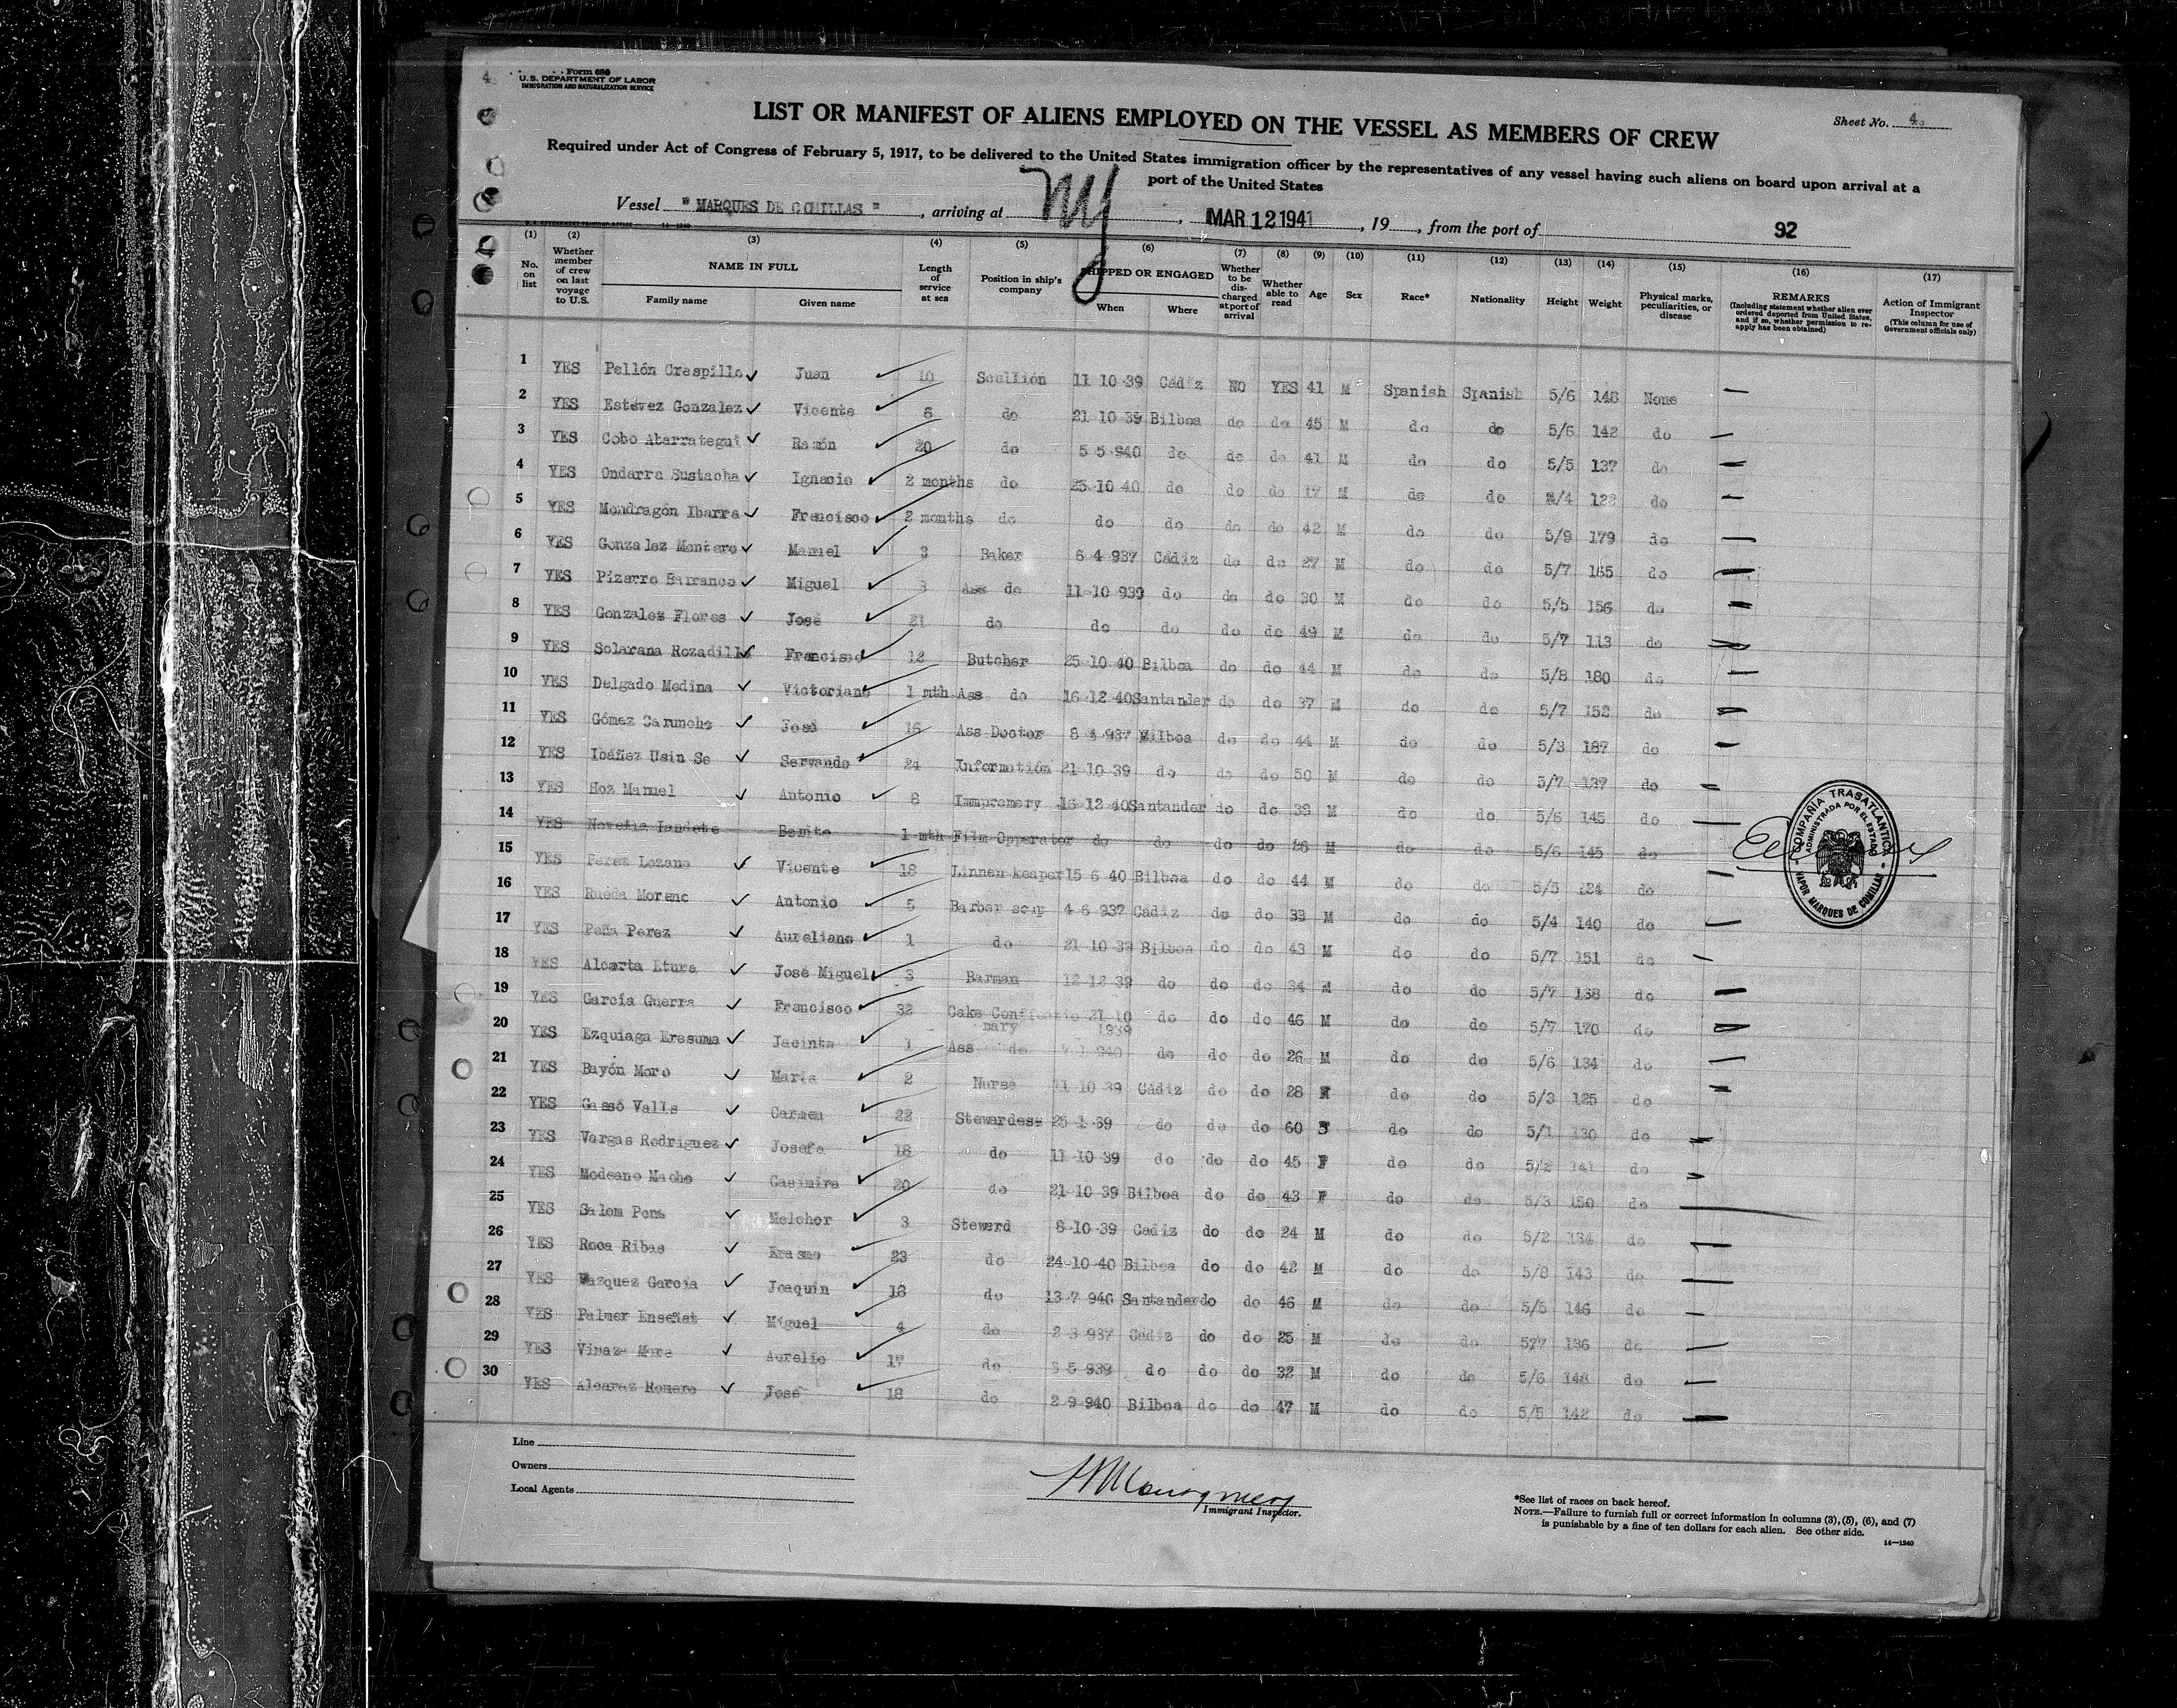 4.
Form 680
U.S. DEPARTMENT OF LABOR
IMMIGRATION AND NATURALIZATION SERVICE
Sheet No. 4.
LIST OR MANIFEST OF ALIENS EMPLOYED ON THE VESSEL AS MEMBERS OF CREW
Required under Act of Congress of February 5, 1917, to be delivered to the United States immigration officer by the representatives of any vessel having such aliens on board upon arrival at a
port of the United States
Vessel " MARQUES DE COMILLAS ", arriving at NY, MAR 12 1941, 19, from the port of 92
(1) (2) (3) (4) (5) (6) (7) (8) (9) (10) (11) (12) (13) (14) (15) (16) (17)
No. on list
Whether member of crew on last voyage to U.S.
NAME IN FULL
Family name Given name
Length of service at sea
Position in ship's company
SHIPPED OR ENGAGED
When Where
Whether to be discharged at port of arrival
Whether able to read
Age Sex Race* Nationality Height Weight
Physical marks, peculiarities, or disease
REMARKS
(Including statement whether alien ever ordered deported from United States, and if so, whether permission to reapply has been obtained)
Action of Immigrant Inspector
(This column for use of Government officials only)
1 YES Pellón Crespillo Juan 10 Scullión 11 10 39 Cádiz NO YES 41 M Spanish Spanish 5/6 148 None
2 YES Estévez Gonzalez Vicente 6 do 21 10 39 Bilboa do do 45 M do do 5/6 142 do
3 YES Cobo Abarrategui Ramón 20 do 5 5 940 do do do 41 M do do 5/5 137 do
4 YES Ondarra Sustacha Ignacio 2 months do 25 10 40 do do do 17 M do do 5/4 do
5 YES Mondragón Ibarra Francisco 2 months do do do do do 42 M do do 5/9 179 do
6 YES Gonzalez Montero Manuel 3 Baker 6 4 937 Cádiz do do 27 M do do 5/7 165 do
7 YES Pizarro Barranco Miguel 3 Ass do 11 10 939 do do do 30 M do do 5/5 156 do
8 YES Gonzalez Flores José 21 do do do do do 49 M do do 5/7 113 do
9 YES Solarana Rozadilla Francisco 12 Butcher 25 10 40 Bilboa do do 44 M do do 5/8 180 do
10 YES Delgado Medina Victoriano 1 mth Ass do 16 12 40 Santander do do 37 M do do 5/7 152 do
11 YES Gómez Caruncho José 16 Ass Doctor 8 937 Bilboa do do 44 M do do 5/3 187 do
12 YES Ibáñez Usin Se Servando 24 Information 21 10 39 do do do 50 M do do 5/7 137 do
13 YES Hoz Manuel Antonio 8 Immpromery 16 12 40 Santander do do 38 M do do 5/6 145 do
14 YES Novella Landete Benito 1 mth Film Opperator do do do do 26 M do do 5/6 145 do
15 YES Perez Lozano Vicente 18 Linnen keaper 15 6 40 Bilboa do do 44 M do do 5/5 124 do
16 YES Rueda Moreno Antonio 5 Barber 4 6 937 Cádiz do do 33 M do do 5/4 140 do
17 YES Peña Perez Aureliano 1 do 21 10 39 Bilboa do do 43 M do do 5/7 151 do
18 YES Alcarta Itura José Miguel 3 Barman 12 12 39 do do do 34 M do do 5/7 138 do
19 YES García Guerra Francisco 32 Cake Conffectio nary 21 10 1939 do do do 46 M do do 5/7 170 do
20 YES Ezquiaga Eresuma Jacinto 1 Ass do 940 do do do 26 M do do 5/6 134 do
21 YES Bayón Moro María 2 Nurse 11 10 39 Cádiz do do 28 F do do 5/3 125 do
22 YES Gassó Valls Carmen 22 Stewardess 25 1 39 do do do 60 F do do 5/1 130 do
23 YES Vargas Rodríguez Josefa 18 do 11 10 39 do do do 45 F do do 5/2 141 do
24 YES Modeano Macho Casimira 20 do 21 10 39 Bilboa do do 43 F do do 5/3 150 do
25 YES Salom Pons Melchor 3 Steward 8 10 39 Cadiz do do 24 M do do 5/2 134 do
26 YES Roca Ribas Erasmo 23 do 24 10 40 Bilboa do do 42 M do do 5/8 143 do
27 YES Vazquez García Joaquín 18 do 13 7 940 Santander do do 46 M do do 5/5 146 do
28 YES Palmer Enseñat Miguel 4 do 2 3 937 Cádiz do do 25 M do do 5/7 136 do
29 YES Vinaza Mora Aurelio 17 do 5 5 939 do do do 32 M do do 5/6 148 do
30 YES Alcaraz Romero José 18 do 2 9 940 Bilboa do do 47 M do do 5/5 142 do
COMPAÑIA TRASATLANTICA
ADMINISTRADA POR EL ESTADO
VAPOR MARQUES DE COMILLAS
Line
Owners
Local Agents
Immigrant Inspector.
*See list of races on back hereof.
NOTE.—Failure to furnish full or correct information in columns (3), (5), (6), and (7)
is punishable by a fine of ten dollars for each alien. See other side.
14—1240